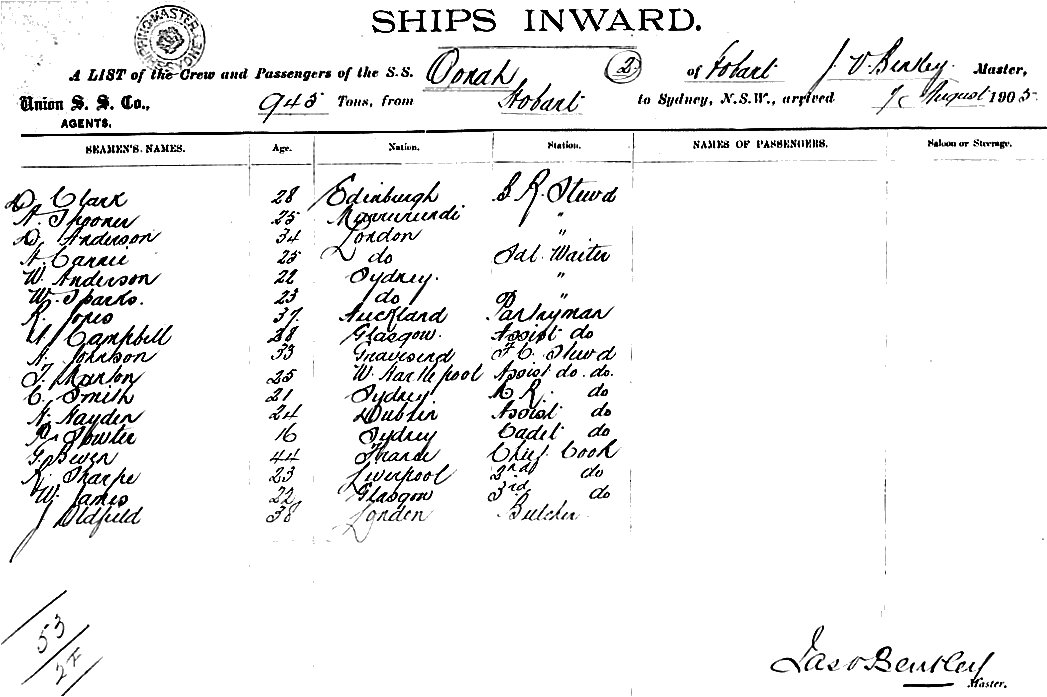 SHIPS INWARD.
A LIST of the Crew and Passengers of the S.S. Oonah (2) of Hobart J. V. Bentley. Master,
Union S. S. Co., 945 Tons, from Hobart to Sydney, N.S.W., arrived 7 August 1905
AGENTS.
SEAMEN'S NAMES. Age. Nation. Station. NAMES OF PASSENGERS. Saloon or Steerage.
D. Clark 28 Edinburgh S. R. Stewd
A. Spooner 25 Murrurundi "
D. Anderson 34 London "
25 do Sal. Waiter
W. Anderson 22 Sydney. "
W. Sparks. 23 do "
R. Jones 37 Auckland Pantryman
Campbell 28 Glasgow. Assist do
A. Johnson 33 Gravesend F. C. Stewd
25 W. Hartlepool Assist do. do.
C. Smith 21 Sydney. R. do
H. Hayden 24 Dublin Assist do
16 Sydney Cadet do
G. Bewen 44 France Chief Cook
R. Sharpe 23 Liverpool 2nd do
W. James 22 Glasgow 3rd do
J Oldfield 38 London Butcher
53
27
Jas V Bentley
Master.